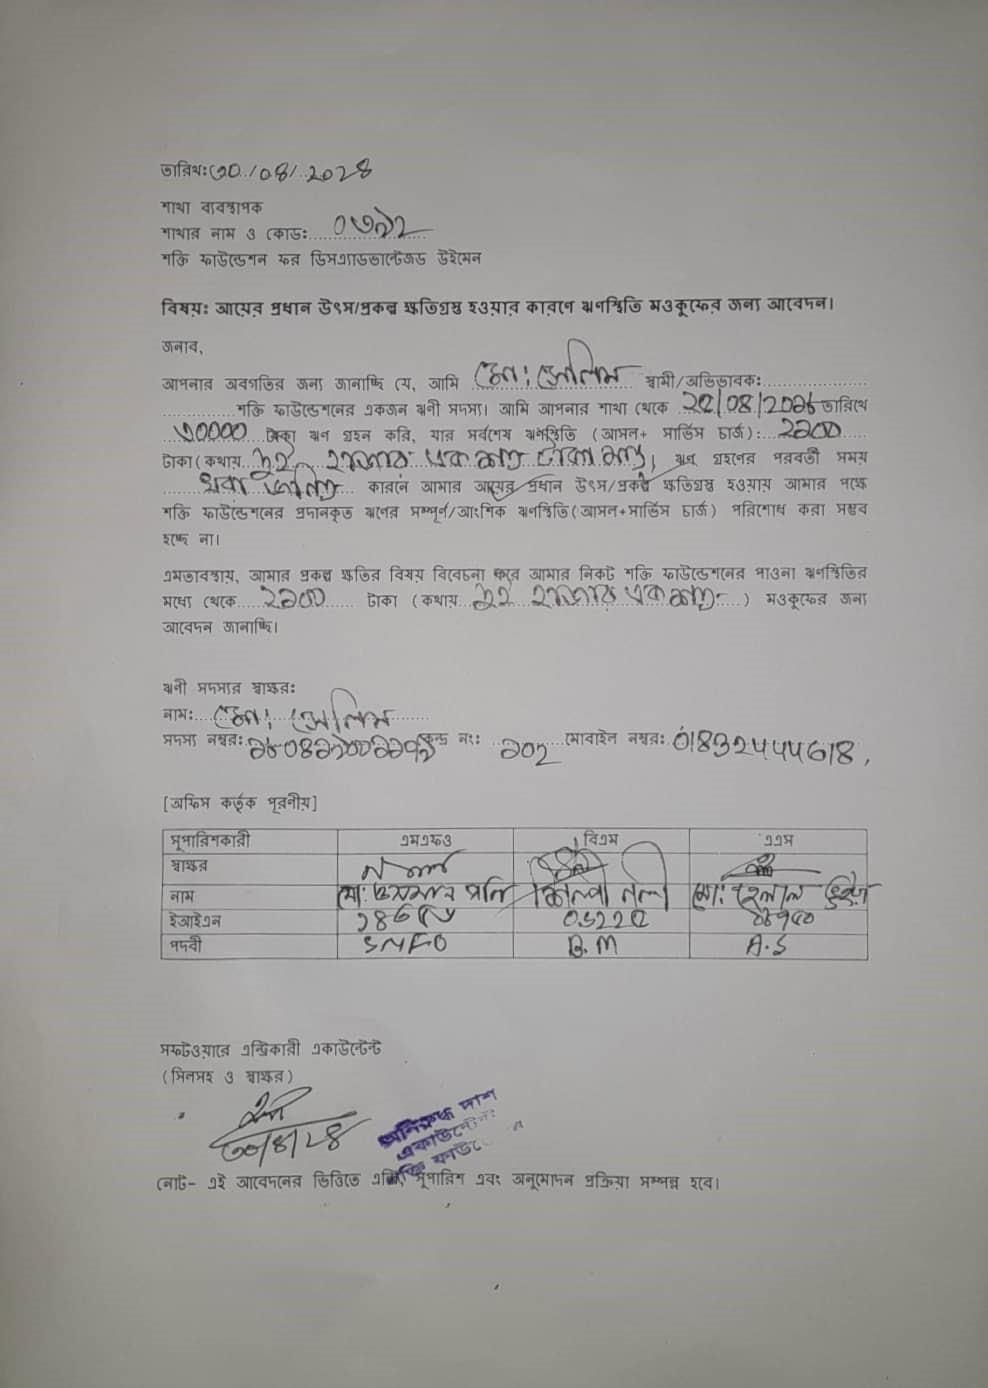 তারিখঃ ৩০/০৪/২০২৪
শাখা ব্যবস্থাপক
শাখার নাম ও কোডঃ
শক্তি ফাউন্ডেশন ফর ডিসএ্যাডভান্টেজড উইমেন
বিষয়ঃ আয়ের প্রধান উৎস/প্রকল্প ক্ষতিগ্রস্ত হওয়ার কারণে ঋণস্থিতি মওকুফের জন্য আবেদন।
জনাব,
আপনার অবগতির জন্য জানাচ্ছি যে, আমি মো: সেলিম স্বামী/অভিভাবক:
শক্তি ফাউন্ডেশনের একজন ঋনী সদস্য। আমি আপনার শাখা থেকে তারিখে
৩০০০০ টাকা ঋণ গ্রহন করি, যার সর্বশেষ ঋণস্থিতি (আসল+ সার্ভিস চার্জ): ২১০০
টাকা (কথায় দুই হাজার এক শত টাকা মাত্র) ঋণ গ্রহণের পরবর্তী সময়
কারনে আমার আয়ের প্রধান উৎস/প্রকল্প ক্ষতিগ্রস্ত হওয়ায় আমার পক্ষে
শক্তি ফাউন্ডেশনের প্রদানকৃত ঋণের সম্পূর্ণ/আংশিক ঋণস্থিতি(আসল+সার্ভিস চার্জ) পরিশোধ করা সম্ভব
হচ্ছে না।
এমতাবস্থায়, আমার প্রকল্প ক্ষতির বিষয় বিবেচনা করে আমার নিকট শক্তি ফাউন্ডেশনের পাওনা ঋণস্থিতির
মধ্যে থেকে ২১০০ টাকা (কথায় দুই হাজার এক শত) মওকুফের জন্য
আবেদন জানাচ্ছি।
ঋনী সদস্যর স্বাক্ষরঃ
নাম: মো: সেলিম
সদস্য নম্বর: কেন্দ্র নং: ১০২ মোবাইল নম্বর:
[অফিস কর্তৃক পূরণীয়]
সুপারিশকারী এমএফও বিএম এএস
স্বাক্ষর
নাম
ইআইএন
পদবী SMFO B.M A.S
সফটওয়ারে এন্ট্রিকারী একাউন্টেন্ট
(সিলসহ ও স্বাক্ষর)
৩০/৪/২৪
অনিরুদ্ধ দাশ
একাউন্টেন্ট
নোট- এই আবেদনের ভিত্তিতে সুপারিশ এবং অনুমোদন প্রক্রিয়া সম্পন্ন হবে।